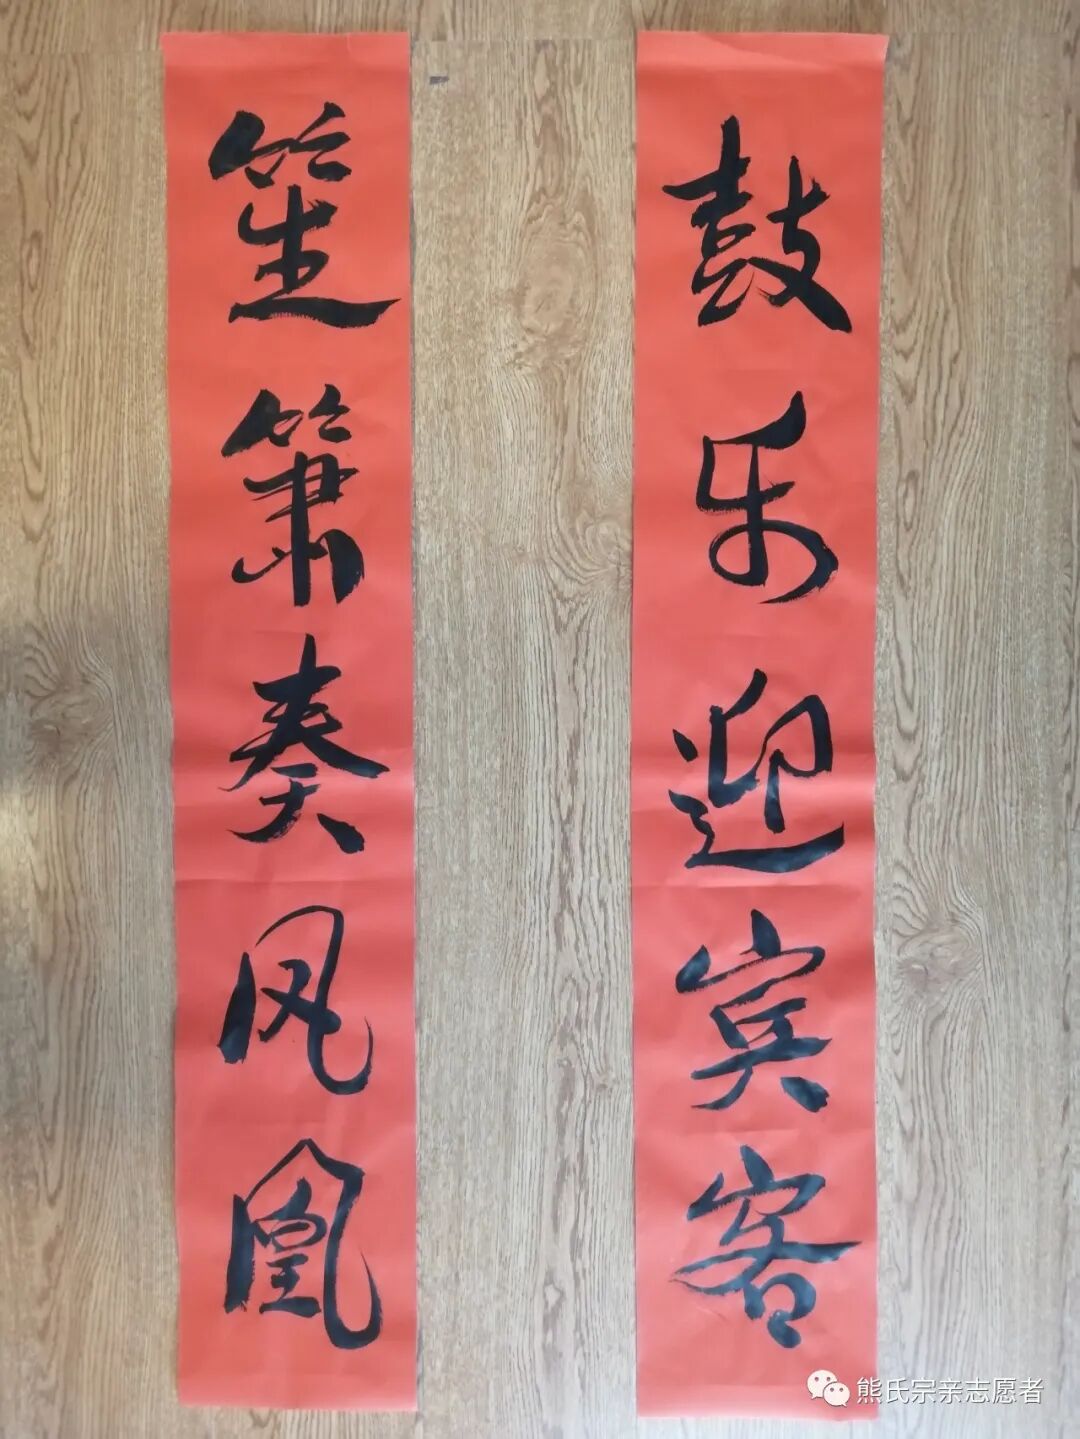 鼓乐迎宾客
笙箫奏凤凰
熊氏宗亲志愿者